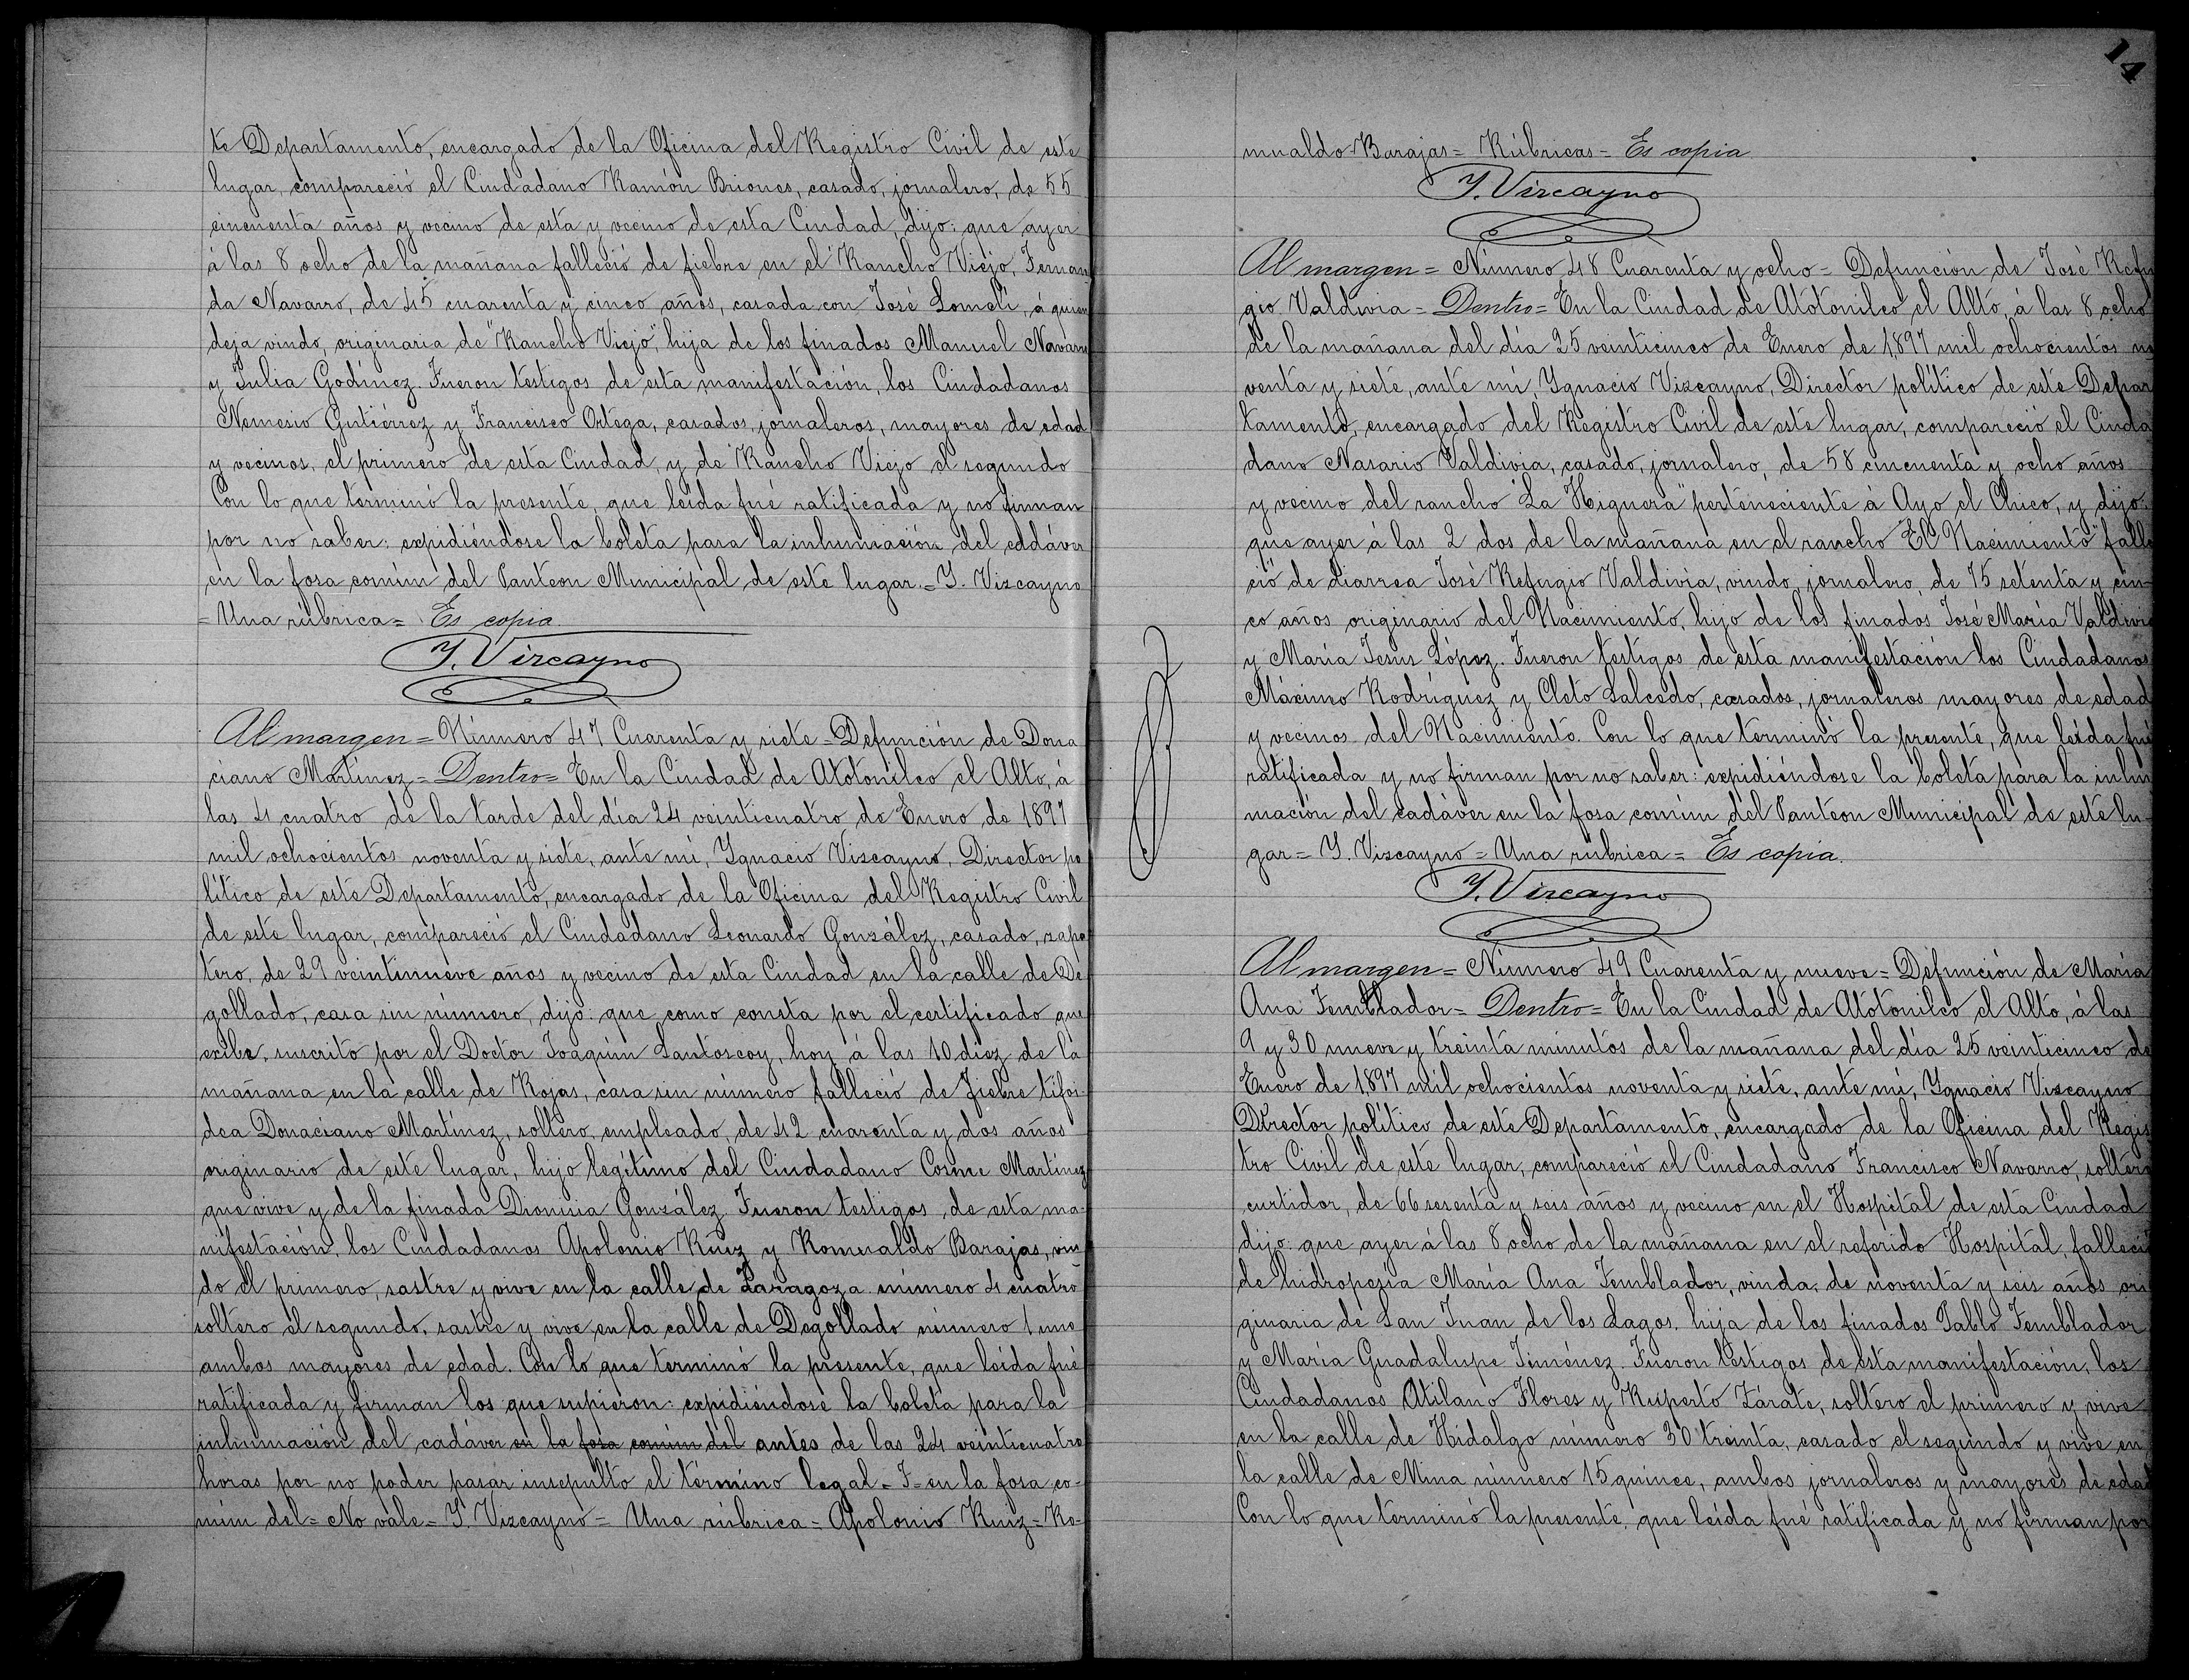 te Departamento, encargado de la Oficina del Registro Civil de este
lugar, compareció el Ciudadano Ramón Briones, casado, jornalero, de 55
cincuenta años y vecino de esta y vecino de esta Ciudad, dijo: que ayer
á las 8 ocho de la mañana falleció de fiebre en el Rancho Viejo, Fernan
da Navarro, de 45 cuarenta y cinco años, casada con José Lomelí, á quien
deja viudo, originaria de "Rancho Viejo", hija de los finados Manuel Navarro
y Julia Godínez. Fueron testigos de esta manifestación, los Ciudadanos
Nemesio Gutiérrez y Francisco Ortega, casados, jornaleros, mayores de edad
y vecinos, el primero de esta Ciudad, y de Rancho Viejo el segundo
Con lo que terminó la presente, que leída fué ratificada y no firman
por no saber: expidiéndose la boleta para la inhumación del cadáver
en la fosa común del Panteon Municipal de este lugar.= Y. Vizcayno
= Una rúbrica = Es copia.
Y. Vizcayno
Al margen = Número 47 Cuarenta y siete = Defunción de Dona
ciano Martínez = Dentro = En la Ciudad de Atotonilco el Alto, á
las 4 cuatro de la tarde del día 24 veinticuatro de Enero de 1897
mil ochocientos noventa y siete, ante mí, Ygnacio Vizcayno, Director po
lítico de este Departamento, encargado de la Oficina del Registro Civil
de este lugar, compareció el Ciudadano Leonardo González, casado, zapa
tero, de 29 veintinueve años y vecino de esta Ciudad en la calle de De
gollado, casa sin número, dijo: que como consta por el certificado que
exibe, suscrito por el Doctor Joaquín Santoscoy, hoy á las 10 diez de la
mañana en la calle de Rojas, casa sin número falleció de fiebre tifoi-
dea Donaciano Martínez, soltero, empleado, de 42 cuarenta y dos años
originario de este lugar, hijo legítimo del Ciudadano Cosme Martínez
que vive y de la finada Dionisia González. Fueron testigos, de esta ma-
nifestación, los Ciudadanos Apolonio Ruiz y Romualdo Barajas, viu
do el primero, sastre y vive en la calle de Zaragoza número 4 cuatro
soltero el segundo, sastre y vive en la calle de Degollado número 1 uno
ambos mayores de edad. Con lo que terminó la presente, que leída fué
ratificada y firman los que supieron: expidiéndose la boleta para la
inhumación del cadáver en la fosa común del antes de las 24 veinticuatro
horas por no poder pasar insepulto el término legal = T = en la fosa co-
mún del = No vale = Y. Vizcayno = Una rúbrica = Apolonio Ruiz = Ro-
14
mualdo Barajas = Rúbricas = Es copia
Y. Vizcayno
Al margen = Número 48 Cuarenta y ocho = Defunción de José Refu
gio Valdivia = Dentro = En la Ciudad de Atotonilco el Alto, á las 8 ocho
de la mañana del día 25 veinticinco de Enero de 1,897 mil ochocientos no
venta y siete, ante mí, Ygnacio Vizcayno, Director político de este Depar
tamento, encargado del Registro Civil de este lugar, compareció el Ciuda
dano Nasario Valdivia, casado, jornalero, de 58 cincuenta y ocho años
y vecino del rancho "La Higuera" perteneciente á Ayo el Chico, y dijo:
que ayer á las 2 dos de la mañana en el rancho "El Nacimiento" falle
ció de diarrea José Refugio Valdivia, viudo, jornalero, de 75 setenta y cin-
co años originario del Nacimiento, hijo de los finados José María Valdivia
y María Jesus López. Fueron testigos de esta manifestación los Ciudadanos
Mácimo Rodríguez y Cleto Salcedo, casados, jornaleros mayores de edad
y vecinos del Nacimiento. Con lo que terminó la presente, que leída fué
ratificada y no firman por no saber: expidiéndose la boleta para la inhu
mación del cadáver en la fosa común del Panteon Municipal de este lu-
gar = Y. Vizcayno = Una rúbrica = Es copia.
Y. Vizcayno
Al margen = Número 49 Cuarenta y nueve = Defunción de María
Ana Temblador = Dentro = En la Ciudad de Atotonilco el Alto, á las
9 y 30 nueve y treinta minutos de la mañana del día 25 veinticinco de
Enero de 1,897 mil ochocientos noventa y siete, ante mí, Ygnacio Vizcayno
Director político de este Departamento, encargado de la Oficina del Regis
tro Civil de este lugar, compareció el Ciudadano Francisco Navarro, soltero
curtidor, de 66 sesenta y seis años y vecino en el Hospital de esta Ciudad
dijo: que ayer á las 8 ocho de la mañana en el referido Hospital, falleció
de hidropesia María Ana Temblador, viuda, de noventa y seis años ori
ginaria de San Juan de los Lagos, hija de los finados Pablo Temblador
y María Guadalupe Jiménez. Fueron testigos de esta manifestación, los
Ciudadanos Atilano Flores y Ruperto Zárate, soltero el primero y vive
en la calle de Hidalgo número 30 treinta, casado el segundo y vive en
la calle de Mina número 15 quince, ambos jornaleros y mayores de edad
Con lo que terminó la presente, que leída fué ratificada y no firman por